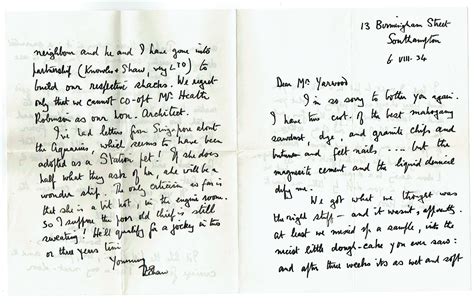 13 Birmingham Street
Southampton
6 VIII. 34
Dear Mr Yarwood
I'm so sorry to bother you again.
I have two cwt. of the best mahogany
sawdust, dye, and granite chips and
bitumen and felt nails .... but the
magnesite cement and the liquid
defy me.
We got what we thought was
the right stuff - and it wasn't, apparently.
at least we mixed up a sample, into the
nicest little dough-cake you ever saw:
and after three weeks its as wet and soft
neighbour and he and I have gone into
partnership (Knowles & Shaw, very LTD) to
build our respective shacks. We regret
only that we cannot co-opt Mr Heath
Robinson as our hon. Architect.
I've had letters from Singapore about
the Aquarius, which seems to have been
adopted as a Station pet! If she does
half what they ask of her, she will be a
wonder ship. The only criticism so far is
that she is a bit hot, in the engine room.
So I suppose the poor old chief is still
sweating! He'll qualify for a jockey in two
or three years time
Yours
TEShaw